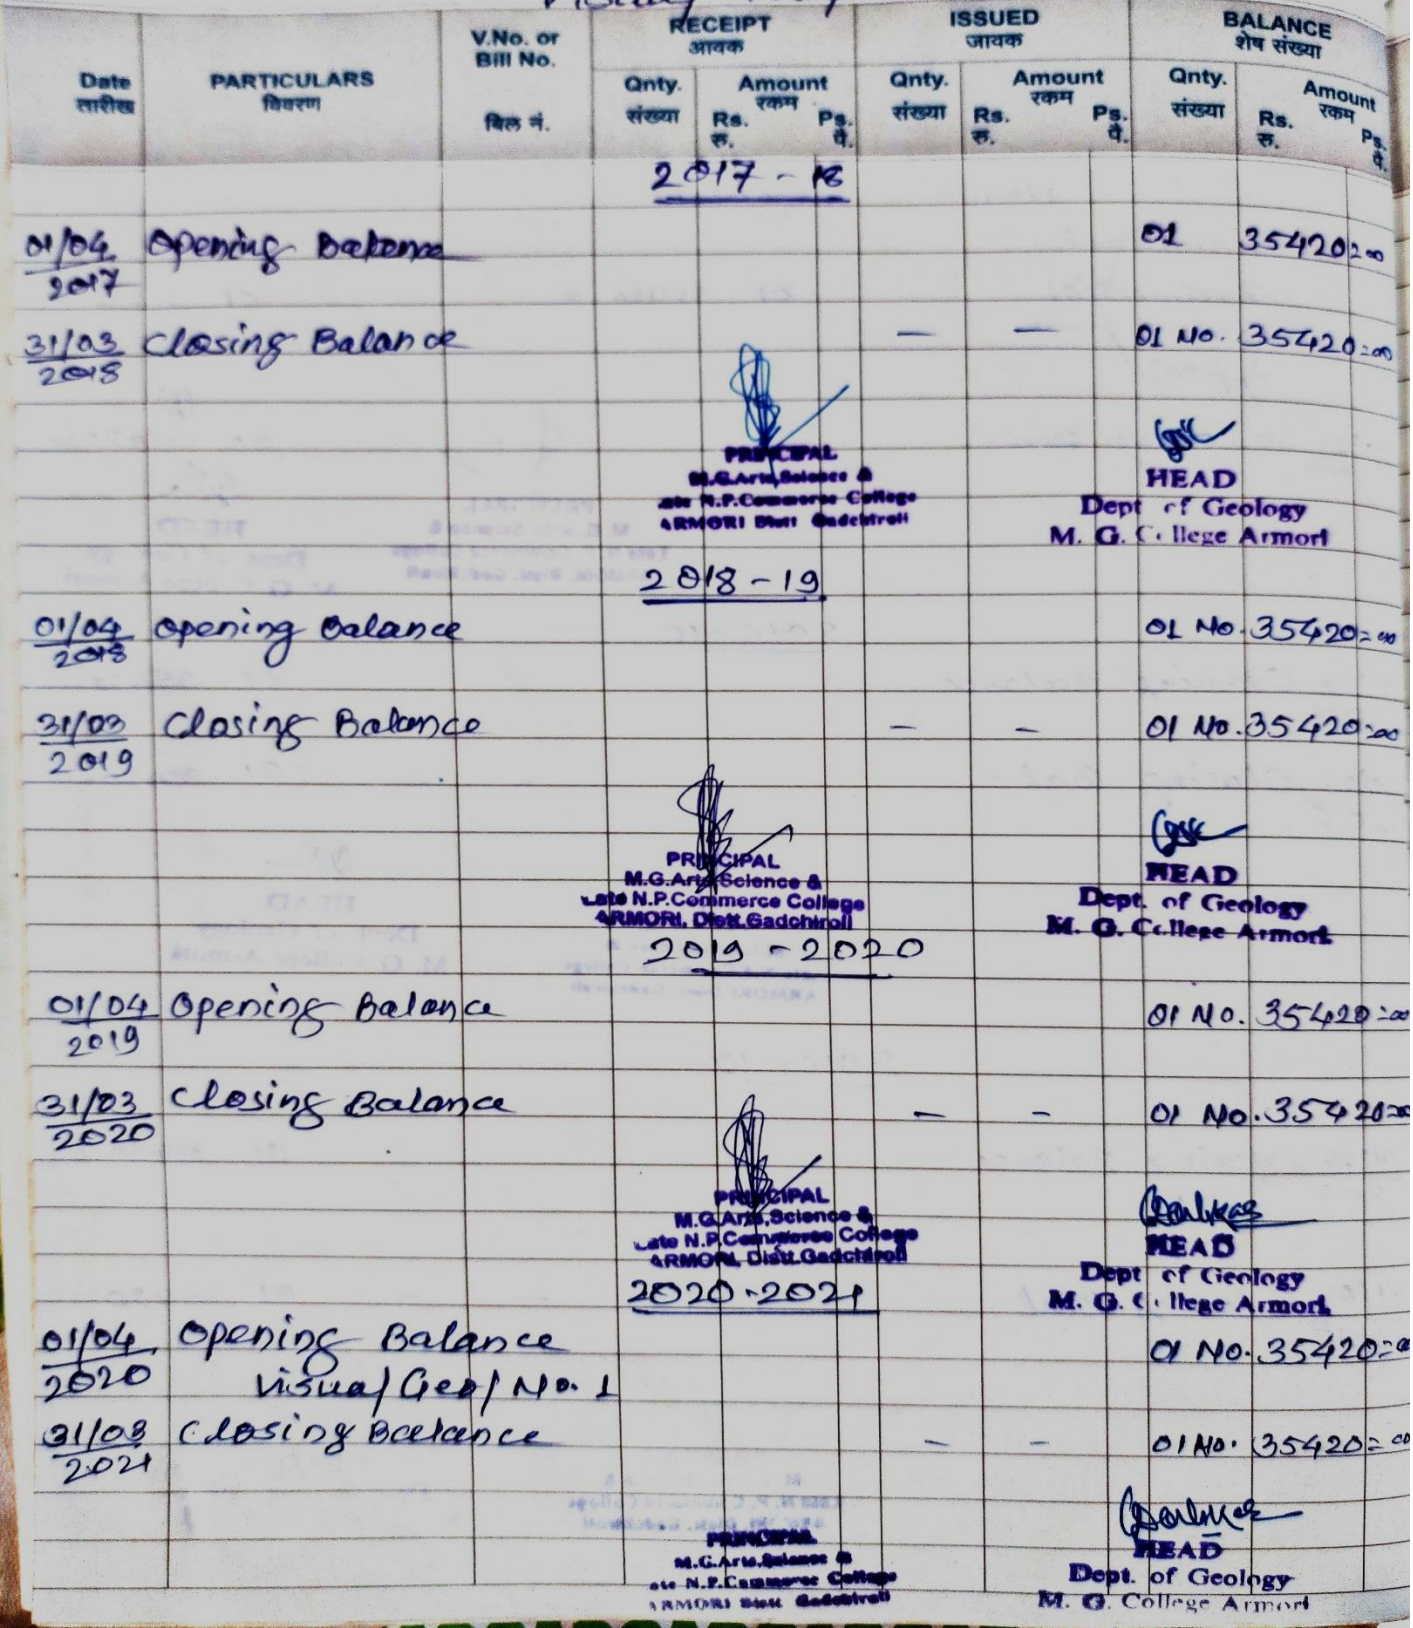 RECEIPT ISSUED BALANCE
आवक जावक शेष संख्या
Date PARTICULARS V.No. or Bill No. Qnty. Amount Qnty. Amount Qnty. Amount
तारीख विवरण बिल नं. संख्या रकम संख्या रकम संख्या रकम
Rs. Ps. Rs. Ps. Rs. Ps.
रु. पै. रु. पै. रु. पै.
2017-18
01/04 2017 Opening Balance 01 35420=00
31/03 2018 Closing Balance — — 01 No. 35420=00
PRINCIPAL
M.G.Arts,Science &
Late N.P.Commerce College
ARMORI Distt Gadchiroli
HEAD
Dept of Geology
M. G. College Armori
2018-19
01/04 2018 Opening Balance 01 No. 35420=00
31/03 2019 Closing Balance — — 01 No. 35420=00
PRINCIPAL
M.G.Arts Science &
Late N.P.Commerce College
ARMORI, Distt.Gadchiroli
HEAD
Dept. of Geology
M. G. College Armori
2019-2020
01/04 2019 Opening Balance 01 No. 35420=00
31/03 2020 Closing Balance — — 01 No. 35420=00
PRINCIPAL
M.G.Arts,Science &
Late N.P.Commerce College
ARMORI, Distt.Gadchiroli
HEAD
Dept of Geology
M. G. College Armori
2020-2021
01/04 2020 Opening Balance 01 No. 35420=00
Visual/Geo/No. 1
31/03 2021 Closing Balance — — 01 No. 35420=00
PRINCIPAL
M.G.Arts,Science &
Late N.P.Commerce College
ARMORI Distt Gadchiroli
HEAD
Dept. of Geology
M. G. College Armori